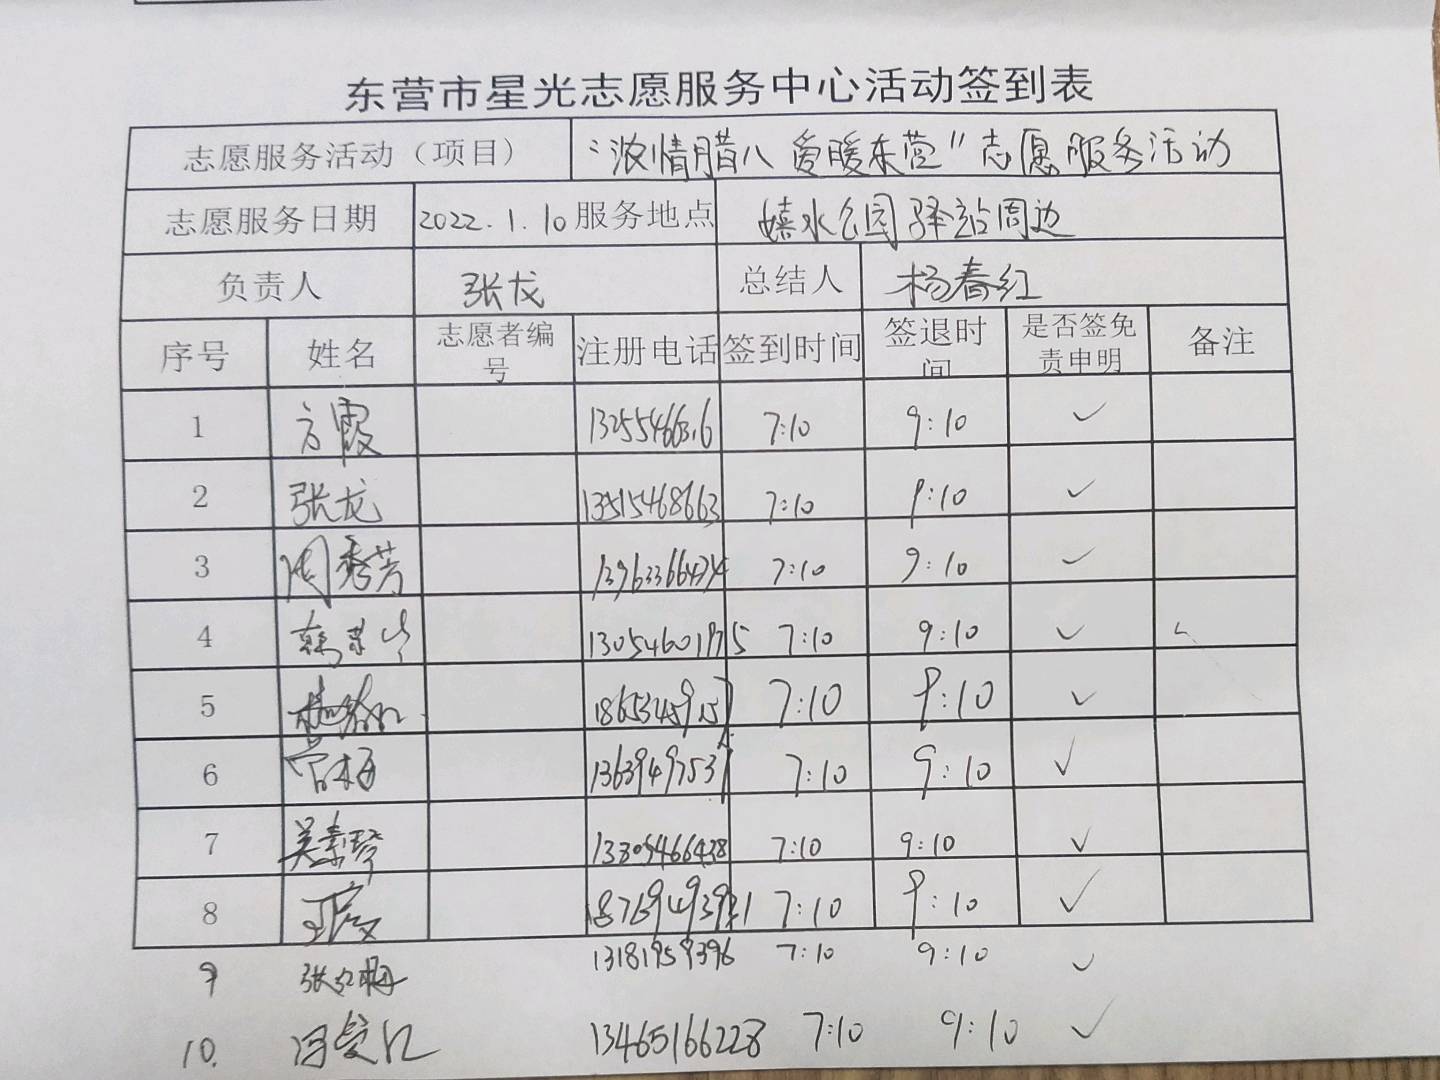 东营市星光志愿服务中心活动签到表
志愿服务活动（项目） “浓情腊八 爱暖东营”志愿服务活动
志愿服务日期 2022.1.10 服务地点 嬉水公园驿站周边
负责人 张龙 总结人 杨春红
序号 姓名 志愿者编号 注册电话 签到时间 签退时间 是否签免责申明 备注
1 方霞 7:10 9:10 ✓
2 张龙 13515468663 7:10 9:10 ✓
3 周秀芳 7:10 9:10 ✓
4 7:10 9:10 ✓
5 7:10 9:10 ✓
6 宫梅 7:10 9:10 ✓
7 吴素琴 13805466438 7:10 9:10 ✓
8 7:10 9:10 ✓
9 张红梅 13181959396 7:10 9:10 ✓
10. 13465166228 7:10 9:10 ✓